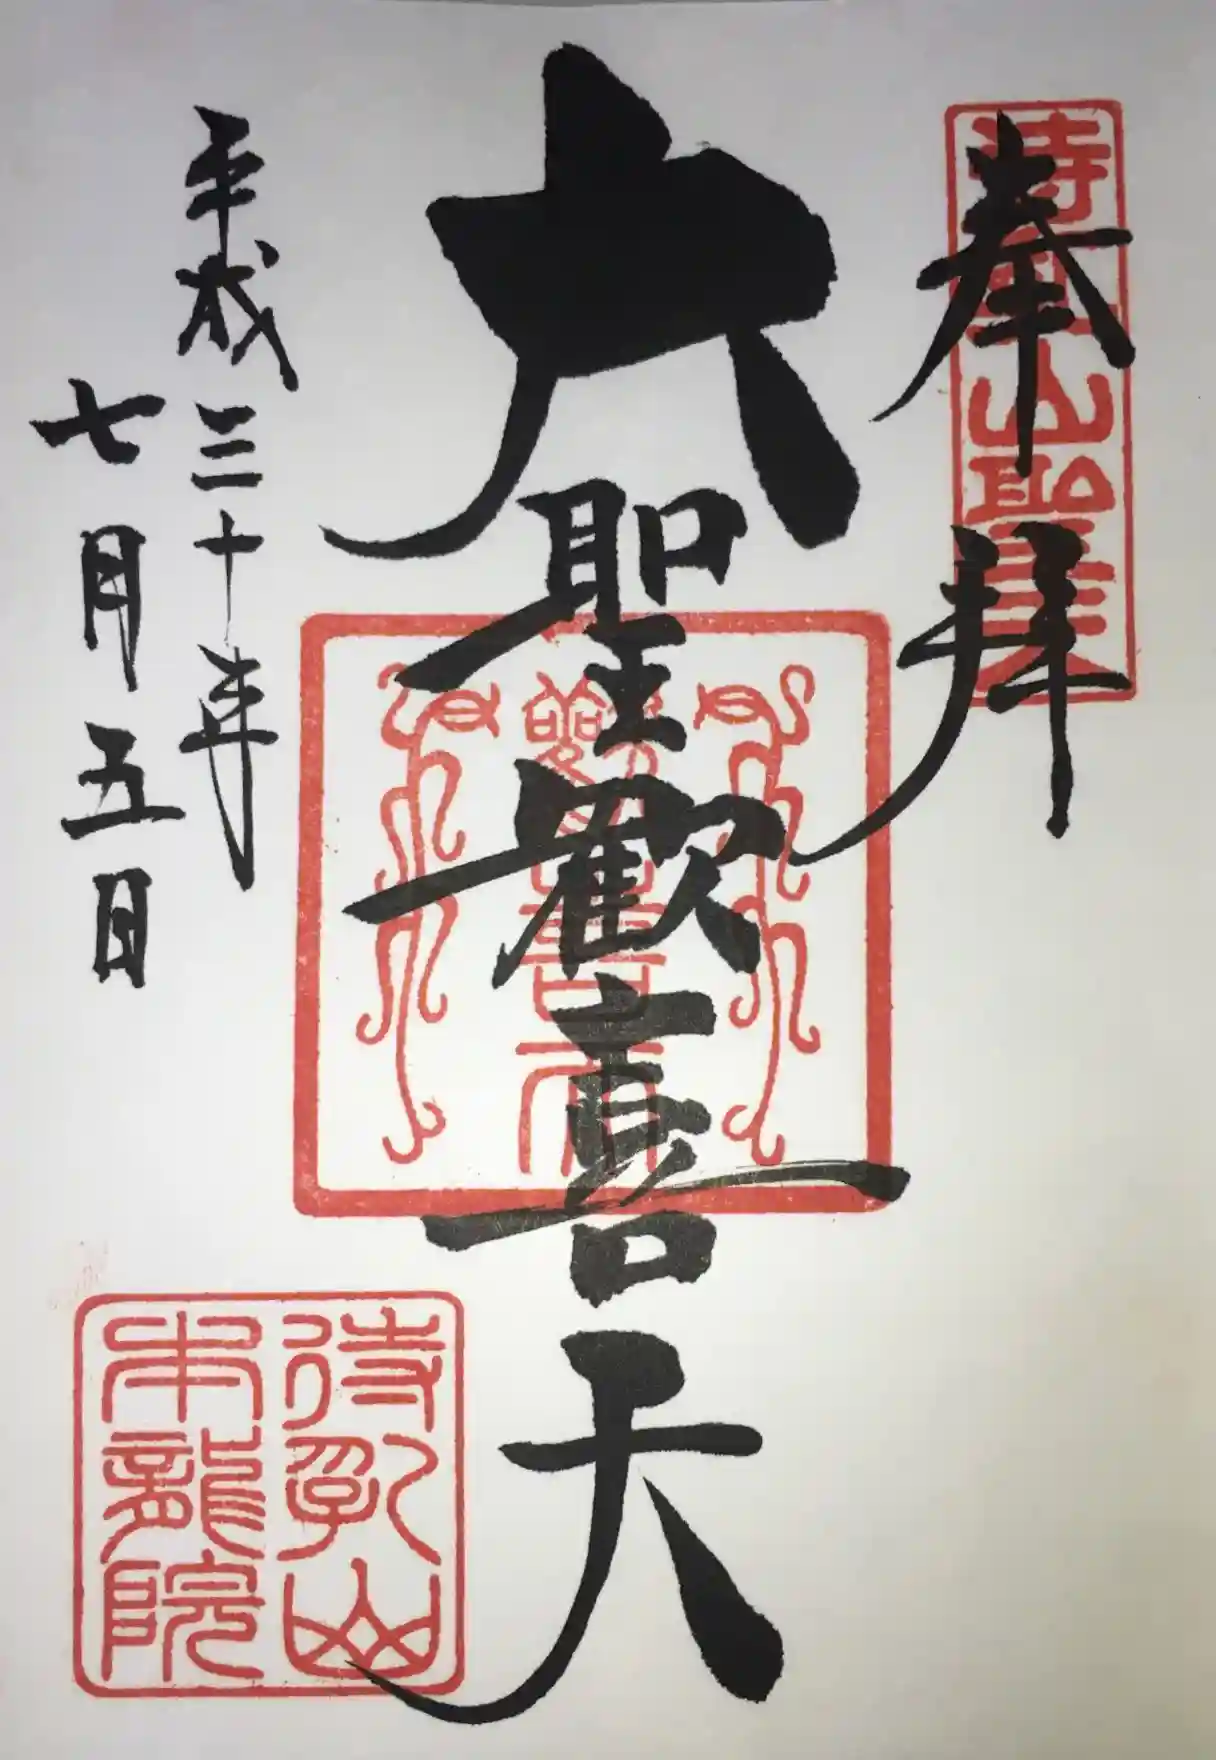 待乳山聖天
奉拝
大聖歓喜天
歡喜天
平成三十年
七月五日
待乳山
本龍院